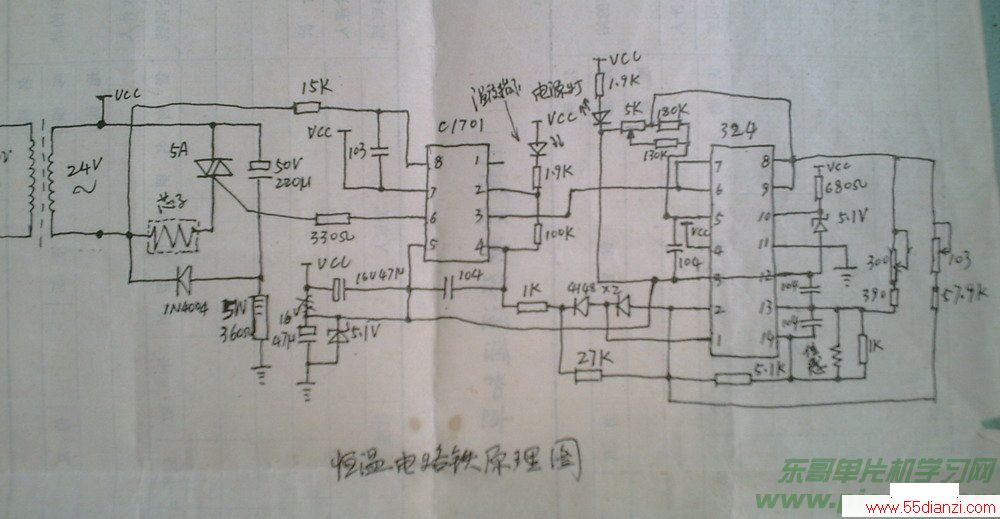 VCC
15K
C1701
VCC
103
5A
24V
～
50V
220μ
芯子
330Ω
1N4004
5W
360Ω
VCC
16V47μ
16V
47μ
5.1V
104
8
7
6
5
1
2
3
4
电源灯
VCC
1.9K
100K
1K
4148×2
27K
VCC
1.9K
5K
180K
130K
324
7
6
5
4
3
2
1
8
9
10
11
12
13
14
VCC
104
VCC
680Ω
5.1V
104
104
300
390
103
57.9K
1K
5.1K
恒温电烙铁原理图
东哥单片机学习网
www.55dianzi.com